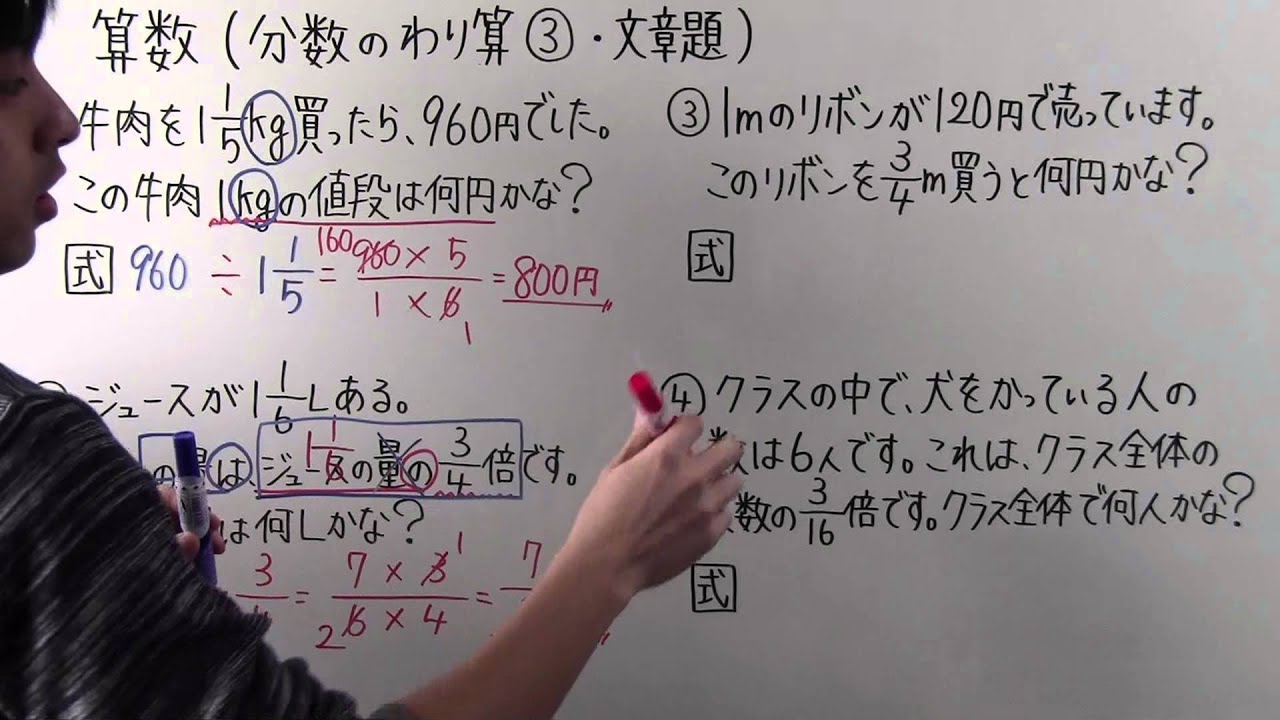 算数(分数のわり算③・文章題)
牛肉を1 1/5kg買ったら、960円でした。
この牛肉1kgの値段は何円かな?
式 960 ÷ 1 1/5 = 160 960 × 5 / 1 × 6 1 = 800円
ジュースが1 1/6Lある。
は、ジュースの量の 3/4倍です。
1 1/6
は何Lかな?
3 = 7 × 3 1 / 2 6 × 4 = 7
③1mのリボンが120円で売っています。
このリボンを3/4m買うと何円かな?
式
④クラスの中で、犬をかっている人の
数は6人です。これは、クラス全体の
数の3/16倍です。クラス全体で何人かな?
式